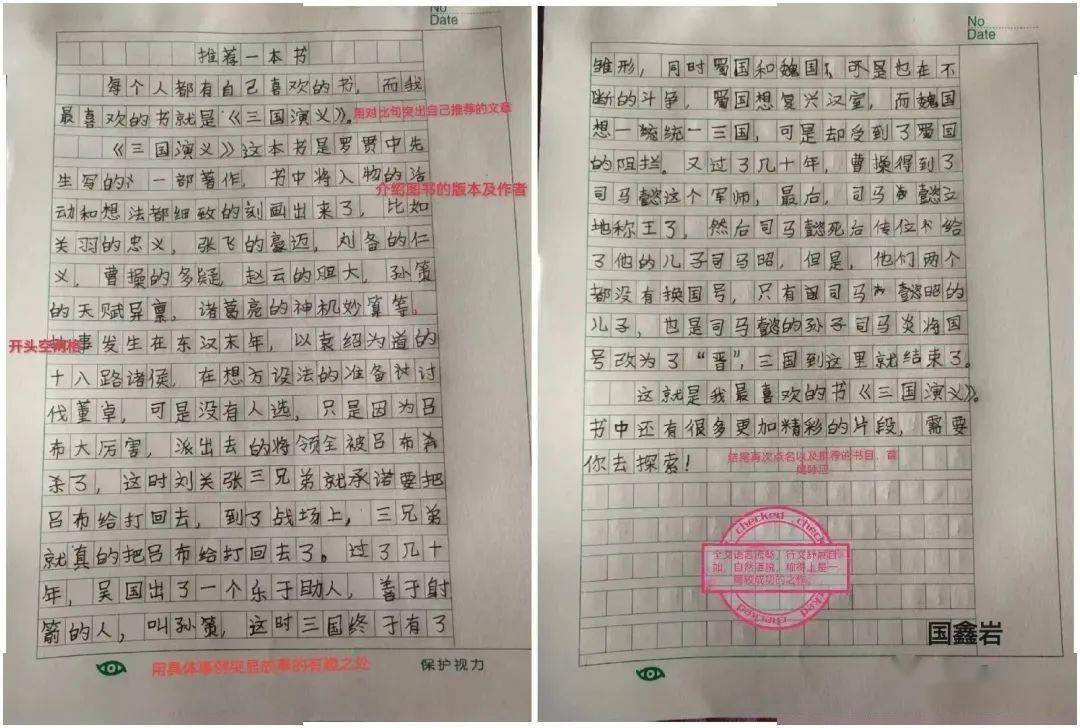 No
Date
推荐一本书
每个人都有自己喜欢的书，而我
最喜欢的书就是《三国演义》。
用对比句突出自己推荐的文章
《三国演义》这本书是罗贯中先
生写的一部著作，书中将人物的活
介绍图书的版本及作者
动和想法都细致的刻画出来了，比如
关羽的忠义，张飞的豪迈，刘备的仁
义，曹操的多疑，赵云的胆大，孙策
的天赋异禀，诸葛亮的神机妙算等。
开头空两格
事发生在东汉末年，以袁绍为道的
十八路诸侯，在想方设法的准备讨讨
伐董卓，可是没有人选，只是因为吕
布大厉害，派出去的将领全被吕布
杀了，这时刘关张三兄弟就承诺要把
吕布给打回去，到了战场上，三兄弟
就真的把吕布给打回去了。过了几十
年，吴国出了一个乐于助人，善于射
箭的人，叫孙策，这时三国终于有了
用具体事例突显故事的有趣之处
保护视力
No
Date
雏形，同时蜀国和魏国，可是也在不
断的斗争，蜀国想复兴汉室，而魏国
想一统一三国，可是却受到了蜀国
的阻拦。又过了几十年，曹操得到了
司马懿这个军师，最后，司马懿立
地称王了，然后司马懿死后传位给
了他的儿子司马昭，但是，他们两个
都没有换国号，只有司马昭的
儿子，也是司马懿的孙子司马炎将国
号改为了“晋”，三国到这里就结束了。
这就是我最喜欢的书《三国演义》。
书中还有很多更加精彩的片段，需要
你去探索！
结尾再次点名以及推荐的书目，首
尾呼应
checked
全文语言流畅，行文舒展自
如，自然洒脱，称得上是一
篇较成功的之作。
国鑫岩